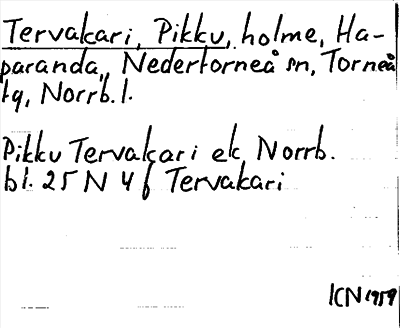 Tervakari, Pikku, holme, Ha-
paranda, Nedertorneå sn, Torneå
tg, Norrb.l.
Pikku Tervakari ek Norrb.
bl. 25 N 4 f Tervakari
KN 1959